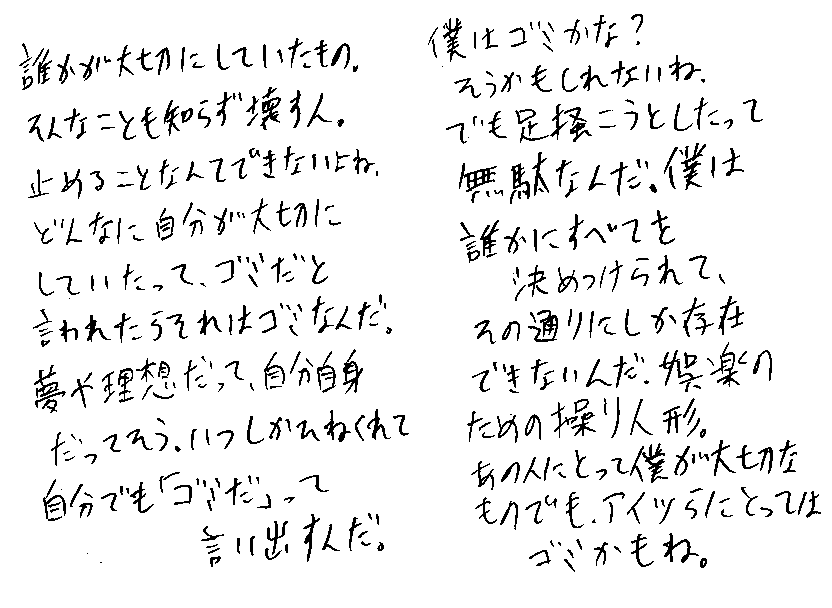 誰かが大切にしていたもの。
そんなことも知らず壊す人。
止めることなんてできないよね。
どんなに自分が大切に
していたって、ゴミだと
言われたらそれはゴミなんだ。
夢や理想だって、自分自身
だってそう。いつしかひねくれて
自分でも「ゴミだ」って
言い出すんだ。
僕はゴミかな?
そうかもしれないね。
でも足掻こうとしたって
無駄なんだ。僕は
誰かにすべてを
決めつけられて、
その通りにしか存在
できないんだ。娯楽の
ための操り人形。
あの人にとって僕が大切な
ものでも、アイツらにとっては
ゴミかもね。